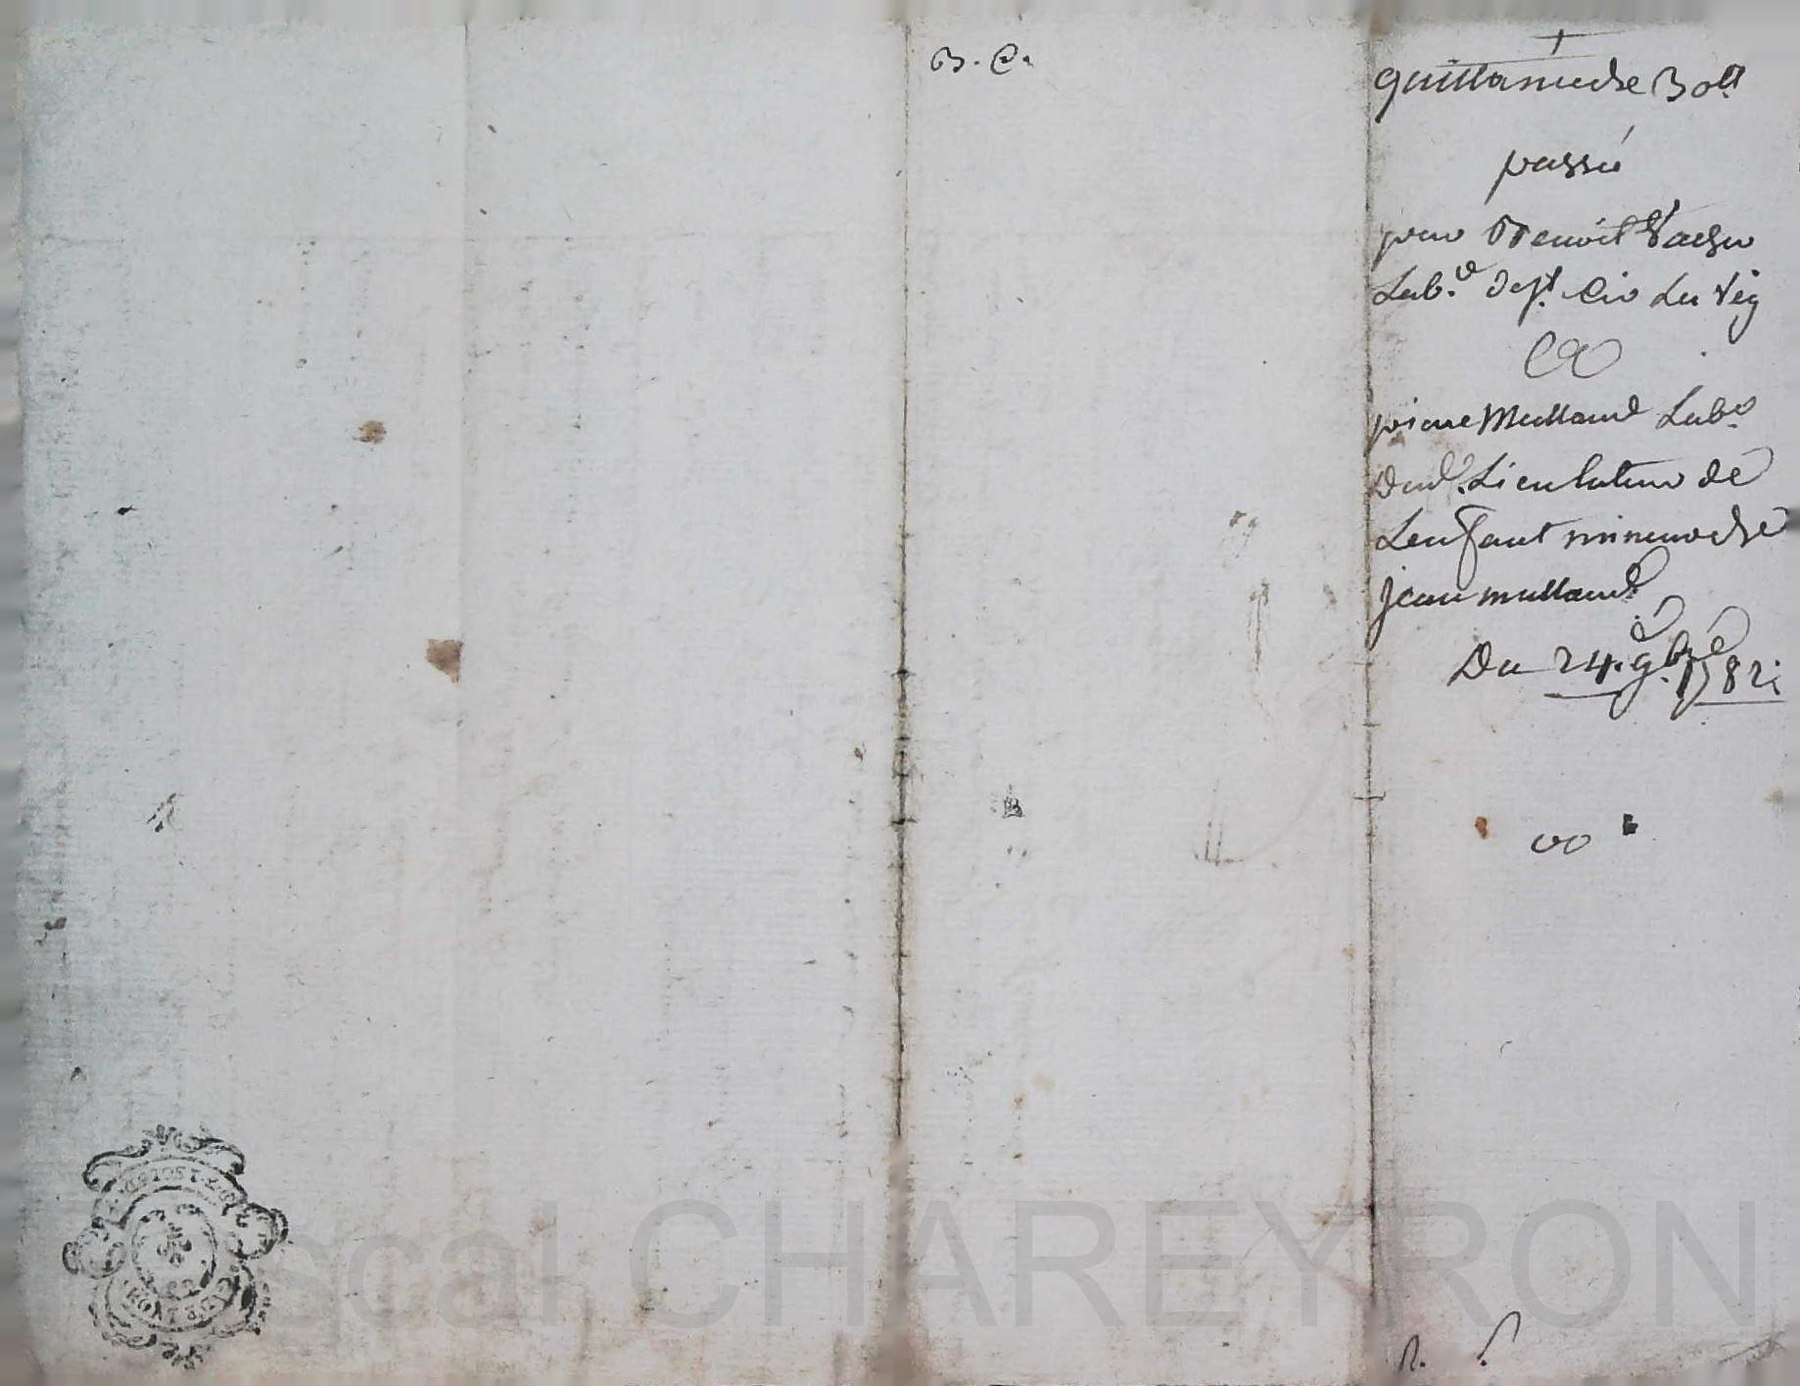 B. C.
quittance de 30ll
passée
par Benoit Vacher
Lab.r de st. Cir Les Vig
A
pierre Mallaud Lab.r
Dud. Lieu tuteur de
Lenfant mineur de
jean mallaud
Du 24. 9bre 1782;
Pascal CHAREYRON